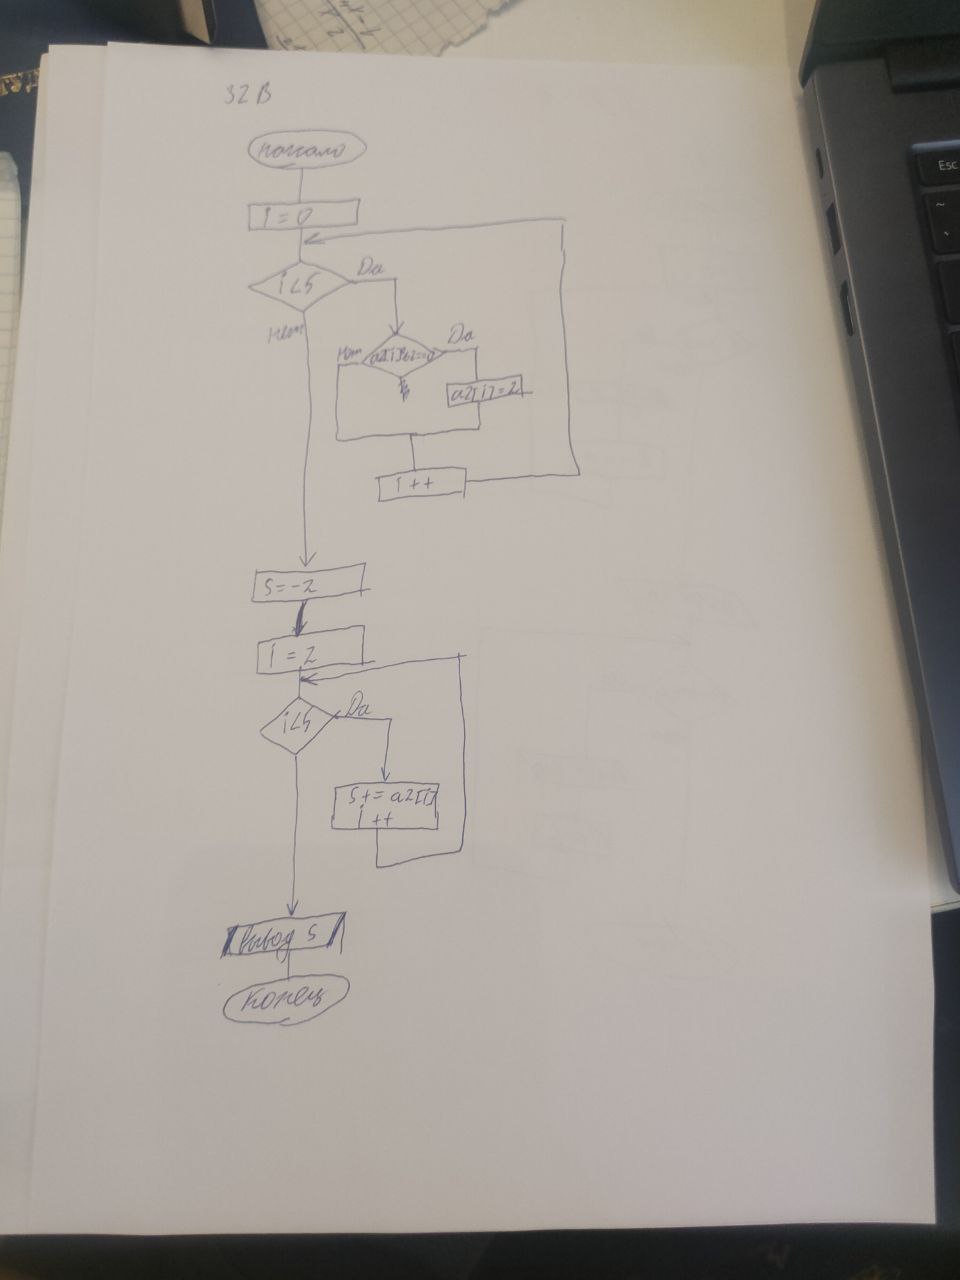 32 В
начало
i = 0
i<5
Да
Нет
a2[i]%2==0
Да
Нет
a2[i]=2
i ++
s=-2
i = 2
i<5
Да
s+= a2[i]
i ++
Вывод s
конец
Esc